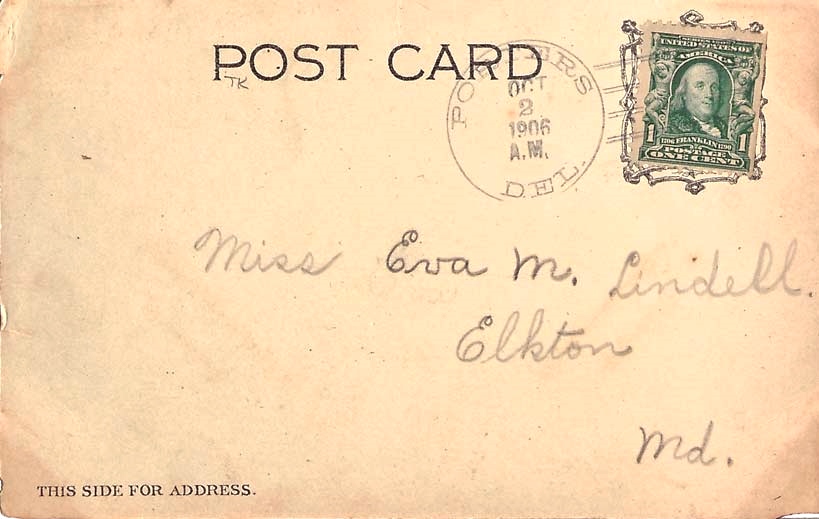 POST CARD
TK
PORTERS
OCT
2
1906
A.M.
DEL.
UNITED STATES OF
AMERICA
1 1706 FRANKLIN 1790 1
POSTAGE
ONE CENT
Miss Eva M. Lindell.
Elkton
Md.
THIS SIDE FOR ADDRESS.